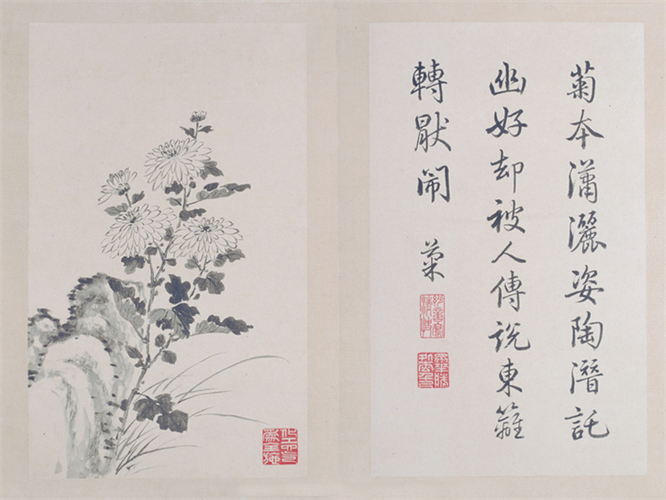 菊本瀟灑姿陶潛託
幽好却被人傳說東籬
轉厭鬧
菊